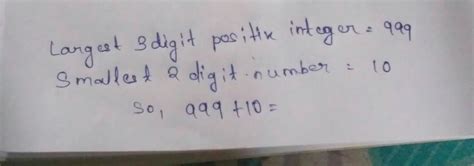 Largest 3 digit positix integer = 999
Smallest 2 digit number = 10
So, 999 + 10 =